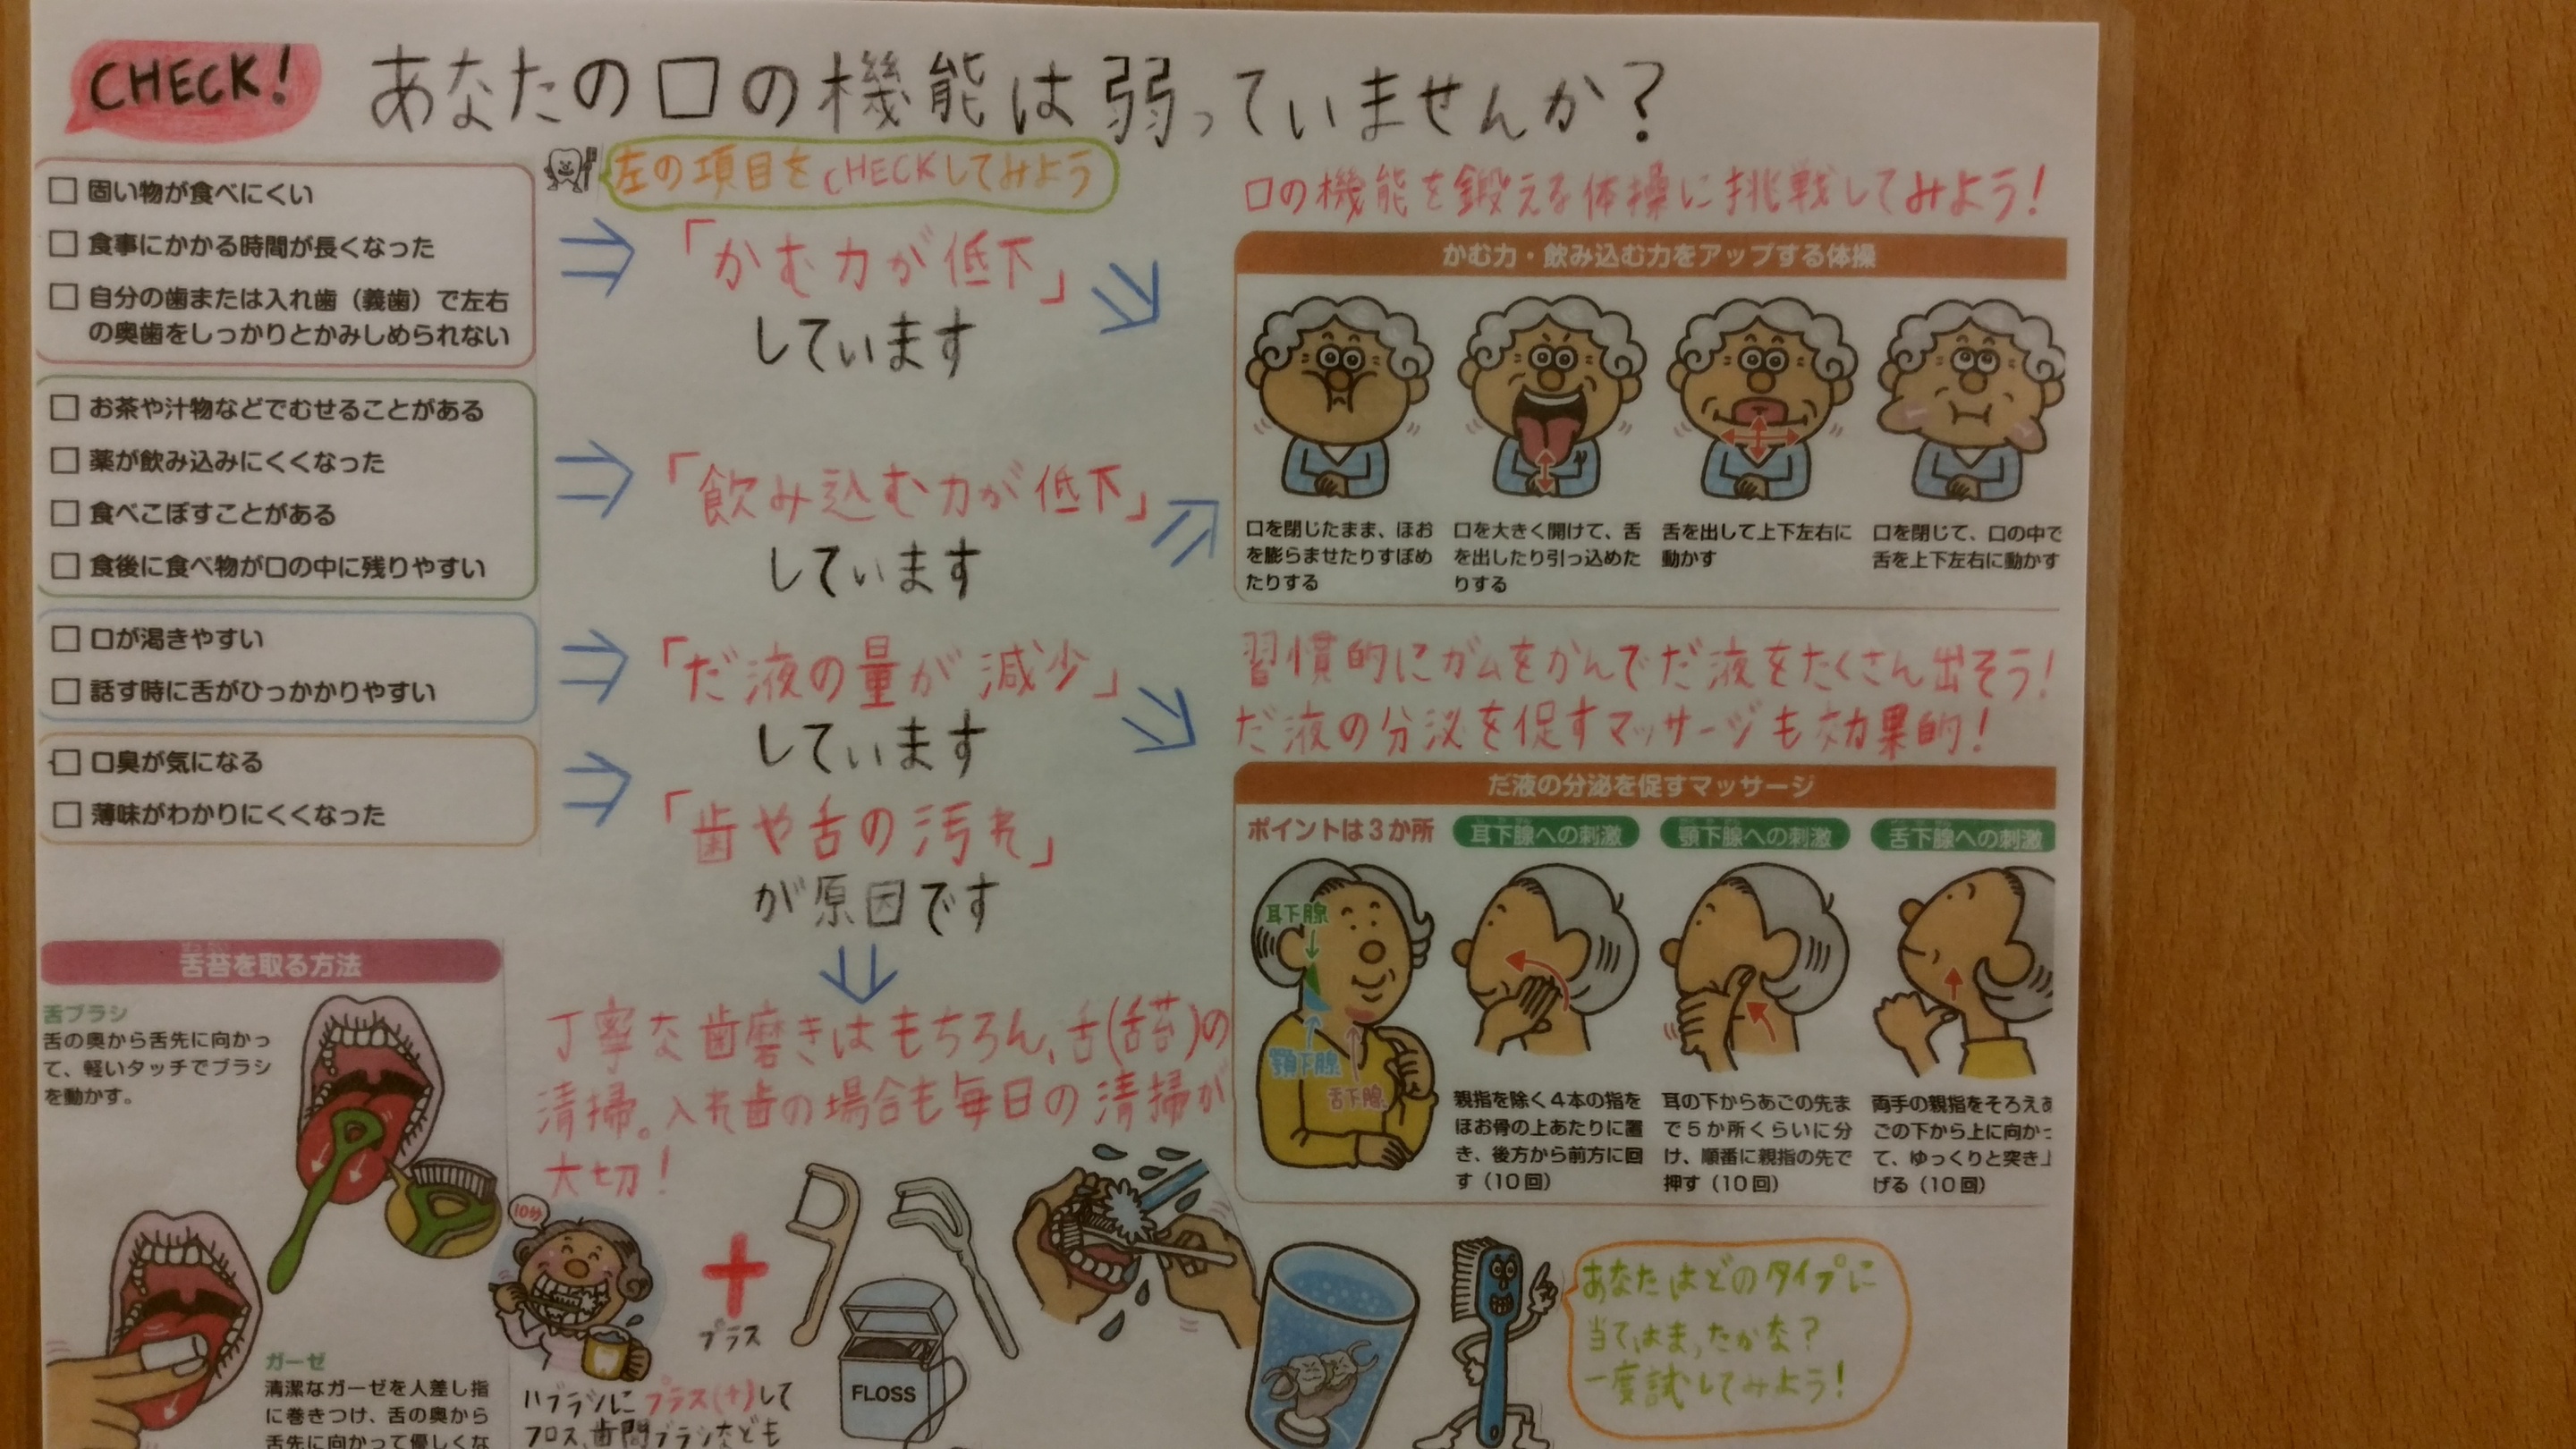 CHECK!
あなたの口の機能は弱っていませんか？
左の項目をCHECKしてみよう
固い物が食べにくい
食事にかかる時間が長くなった
自分の歯または入れ歯（義歯）で左右
の奥歯をしっかりとかみしめられない
お茶や汁物などでむせることがある
薬が飲み込みにくくなった
食べこぼすことがある
食後に食べ物が口の中に残りやすい
口が渇きやすい
話す時に舌がひっかかりやすい
口臭が気になる
薄味がわかりにくくなった
「かむ力が低下」
しています
「飲み込む力が低下」
しています
「だ液の量が減少」
しています
「歯や舌の汚れ」
が原因です
口の機能を鍛える体操に挑戦してみよう！
かむ力・飲み込む力をアップする体操
口を閉じたまま、ほお
を膨らませたりすぼめ
たりする
口を大きく開けて、舌
を出したり引っ込めた
りする
舌を出して上下左右に
動かす
口を閉じて、口の中で
舌を上下左右に動かす
習慣的にガムをかんでだ液をたくさん出そう！
だ液の分泌を促すマッサージも効果的！
だ液の分泌を促すマッサージ
ポイントは３か所
耳下腺
顎下腺
舌下腺
耳下腺への刺激
親指を除く４本の指を
ほお骨の上あたりに置
き、後方から前方に回
す（10回）
顎下腺への刺激
耳の下からあごの先ま
で５か所くらいに分
け、順番に親指の先で
押す（10回）
舌下腺への刺激
両手の親指をそろえあ
ごの下から上に向かっ
て、ゆっくりと突き上
げる（10回）
舌苔を取る方法
舌ブラシ
舌の奥から舌先に向かっ
て、軽いタッチでブラシ
を動かす。
ガーゼ
清潔なガーゼを人差し指
に巻きつけ、舌の奥から
舌先に向かって優しくな
丁寧な歯磨きはもちろん、舌（舌苔）の
清掃。入れ歯の場合も毎日の清掃が
大切！
10分
＋
プラス
FLOSS
ハブラシにプラス（＋）して
フロス、歯間ブラシなども
あなたはどのタイプに
当てはまったかな？
一度試してみよう！